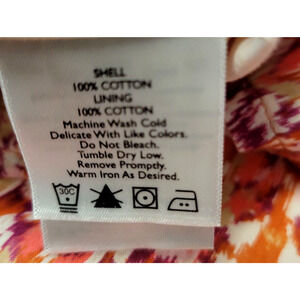 SHELL
100% COTTON
LINING
100% COTTON
Machine Wash Cold
Delicate With Like Colors.
Do Not Bleach.
Tumble Dry Low.
Remove Promptly.
Warm Iron As Desired.
30C